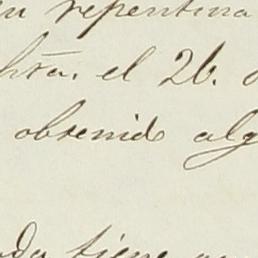 repentina
hña. el 26.
obsenido alg
tiene